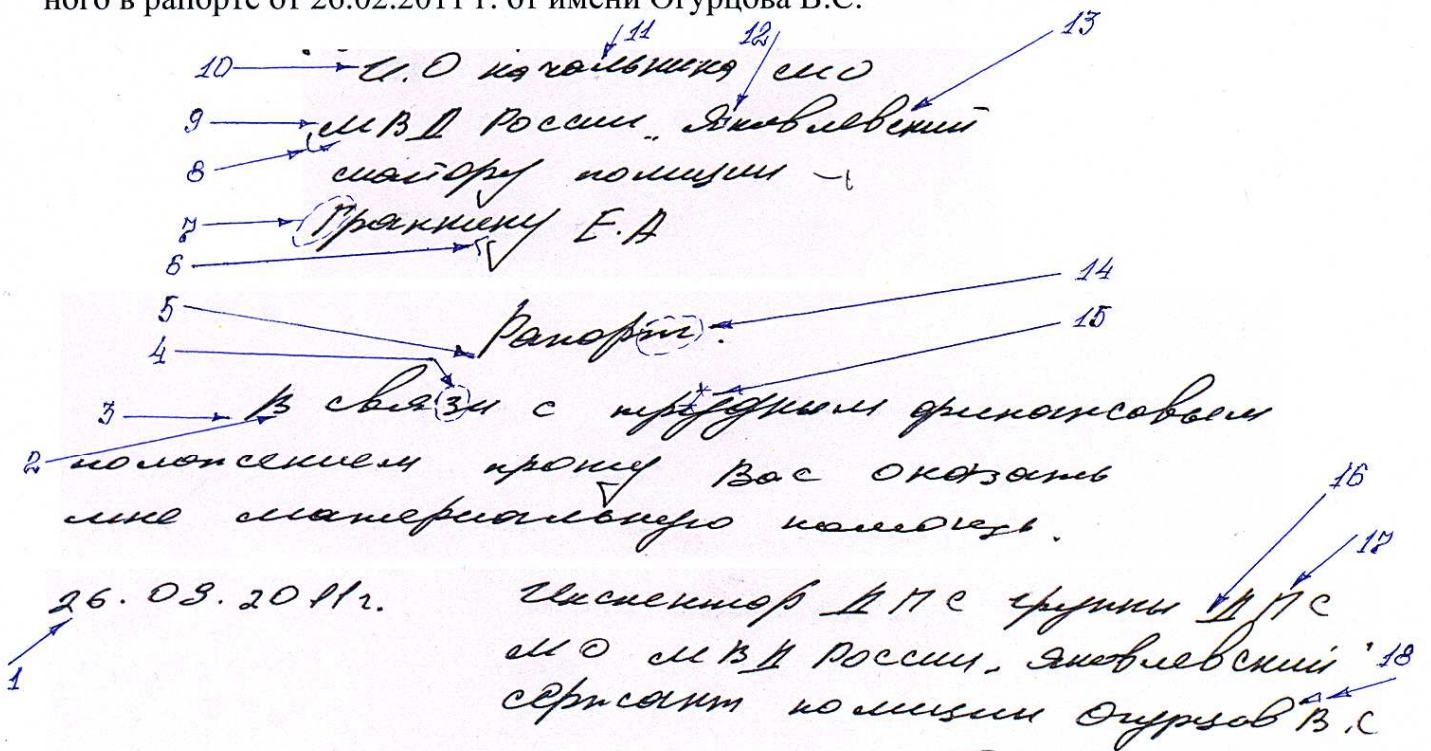 ного в рапорте от 26.02.2011 г. от имени Огурцова В.С.
11 12 13
10 И.О начальника МО
9 МВД России „Яковлевский
8 майору полиции
7 Гранкину Е.А
6
14
5 Рапорт.
15
4
3 В связи с трудным финансовым
2 положением прошу Вас оказать
16
мне материальную помощь.
17
26.03.2011г. Инспектор ДПС группы ДПС
1 МО МВД России „Яковлевский" 18
сержант полиции Огурцов В.С